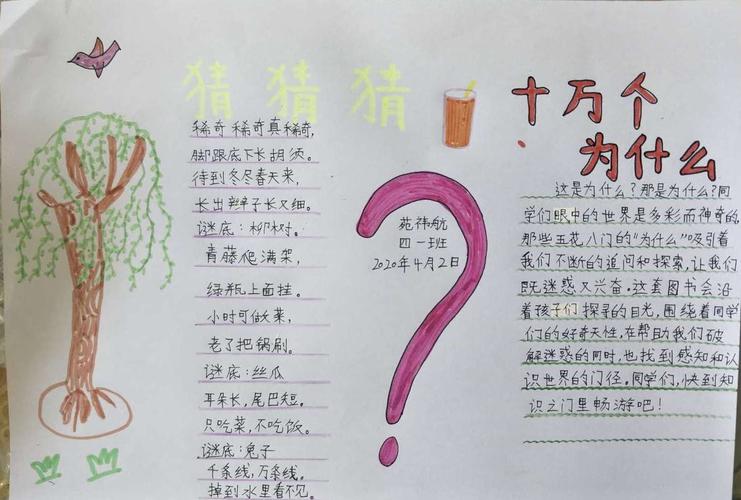 猜猜猜
稀奇稀奇真稀奇,
脚跟底下长胡须。
待到冬尽春天来,
长出辫子长又细。
谜底:柳树.
青藤爬满架,
绿瓶上面挂。
小时可做菜,
老了把锅刷。
谜底:丝瓜
耳朵长,尾巴短.
只吃菜,不吃饭。
谜底:兔子
千条线,万条线。
掉到水里看不见。
苑祎航
四一班
2020年4月2日
十万个
为什么
这是为什么?那是为什么?同
学们眼中的世界是多彩而神奇的,
那些五花八门的“为什么”吸引着
我们不断的追问和探索,让我们
既迷惑又兴奋。这套图书会沿
着孩子们探寻的目光,围绕着同学
们的好奇天性,在帮助我们破
解迷惑的同时,也找到感知和认
识世界的门径。同学们,快到知
识之门里畅游吧!